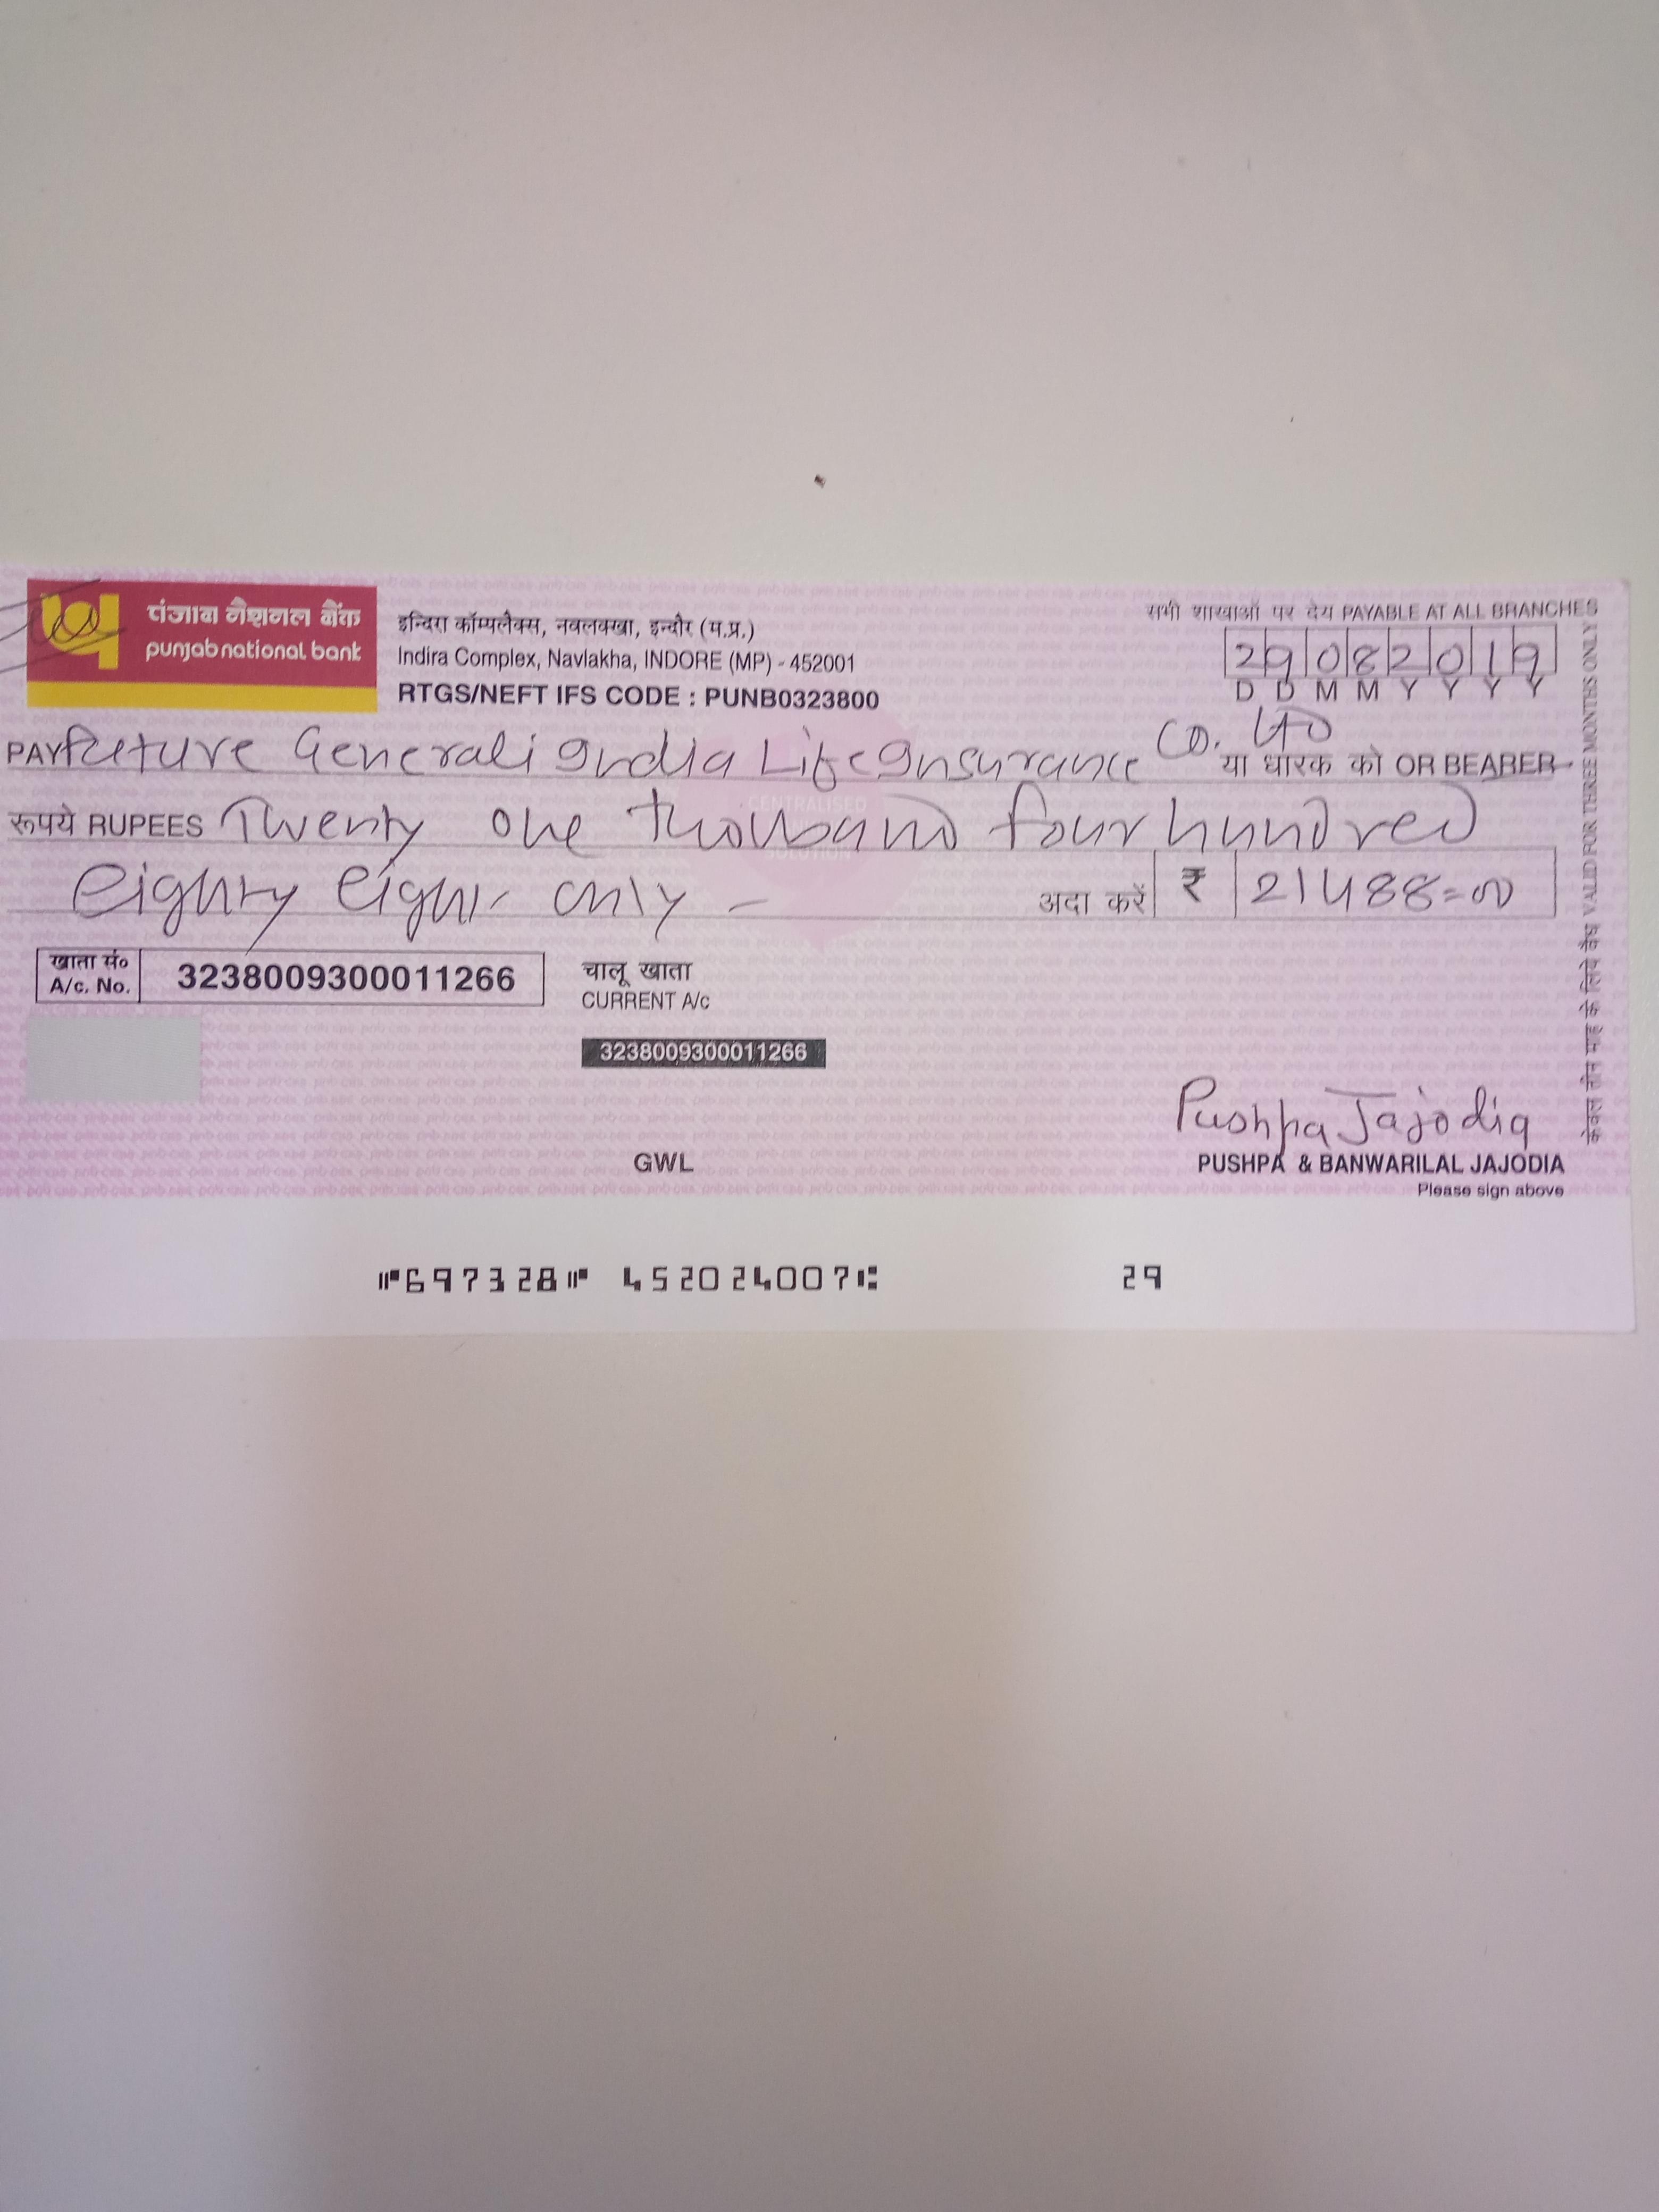 पंजाब नैशनल बैंक
punjab national bank
इन्दिरा कॉम्पलैक्स, नवलक्खा, इन्दौर (म.प्र.)
Indira Complex, Navlakha, INDORE (MP) - 452001
RTGS/NEFT IFS CODE : PUNB0323800
सभी शाखाओं पर देय PAYABLE AT ALL BRANCHES
29082019
D D M M Y Y Y Y
PAY Future Generali India Life Insurance Co. Ltd या धारक को OR BEARER
रूपये RUPEES Twenty one thousand four hundred
eighty eight only -
अदा करें ₹ 21488=00
CENTRALISED
SOLUTION
खाता सं० A/c. No. 3238009300011266
चालू खाता
CURRENT A/c
3238009300011266
Pushpa Jajodia
GWL
PUSHPA & BANWARILAL JAJODIA
Please sign above
⑈697328⑈ 452024007⑆ 29
केवल तीन माह के लिये वैध VALID FOR THREE MONTHS ONLY